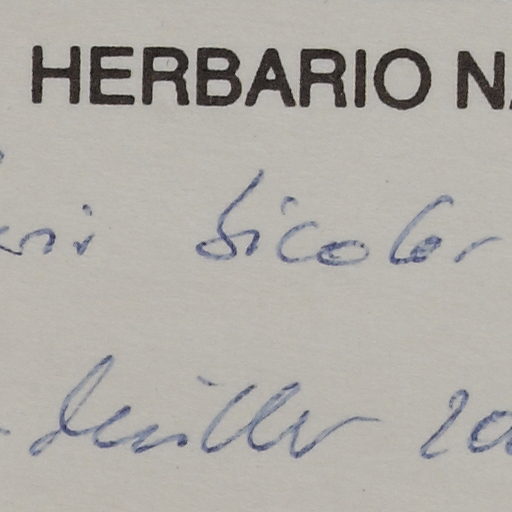 HERBARIO NA
bicolor
Müller 20